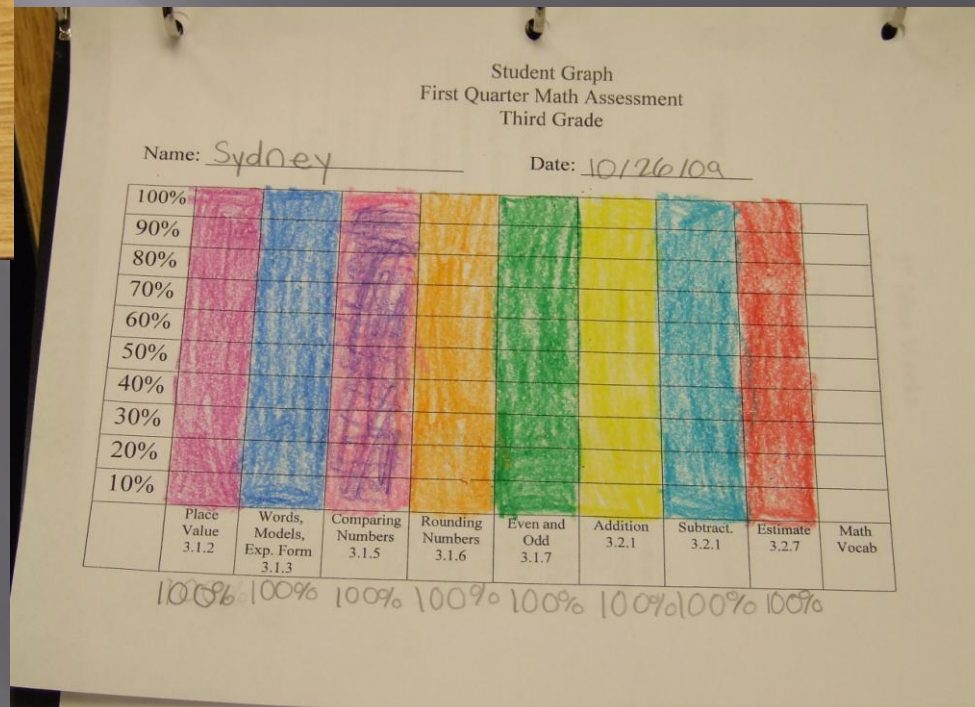 Student Graph
First Quarter Math Assessment
Third Grade
Name: Sydney Date: 10/26/09
100%
90%
80%
70%
60%
50%
40%
30%
20%
10%
Place Value 3.1.2
Words, Models, Exp. Form 3.1.3
Comparing Numbers 3.1.5
Rounding Numbers 3.1.6
Even and Odd 3.1.7
Addition 3.2.1
Subtract. 3.2.1
Estimate 3.2.7
Math Vocab
100% 100% 100% 100% 100% 100% 100% 100%